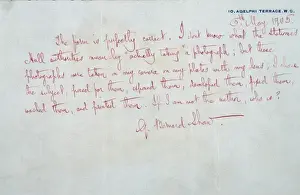 10, ADELPHI TERRACE, W.C.
5th May 1905
The form is perfectly correct. I don't know what the Stationers'
Hall authorities mean by actually taking a photograph; but these
photographs were taken in my camera on my plates with my hand; I chose
the subject, posed for them, exposed them, developed them, fixed them,
washed them, and printed them. If I am not the author, who is?
G. Bernard Shaw